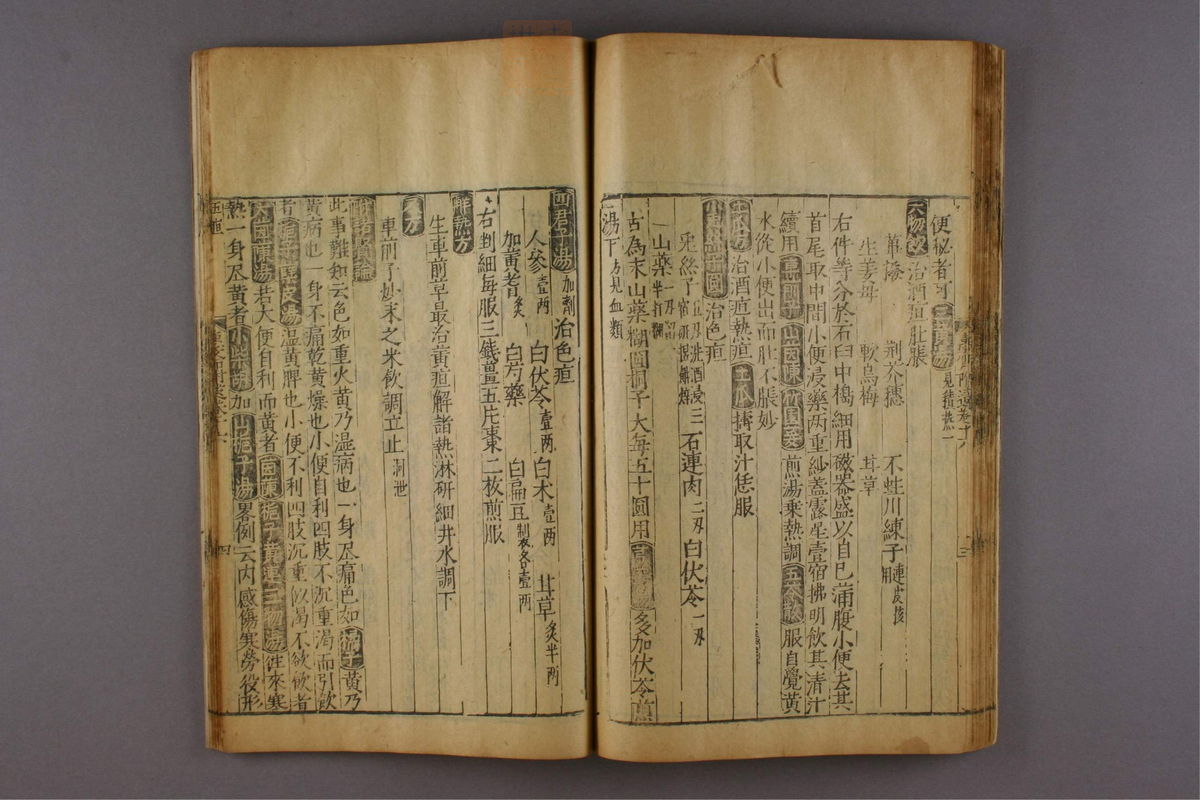 便秘者可三黃湯見積熱一
治酒疸肚脹
荊芥穗 不蛀川練子連皮核用
生姜母 軟烏梅 甘草
右件等分於石臼中擣細用磁器盛以自已滿腹小便去其
首尾取中間小便浸藥两重紗蓋露星壹宿拂明飲其清汁
續用山茵陳煎湯乘熱調五苓散服自覺黃
水從小便出而肚不脹妙
治酒疸熱疸土瓜擣取汁恁服
治色疸
兎絲子 三石連肉二刄白伏苓一刄
山藥
右為末山藥糊圓桐子大每五十圓用多加伏苓煎
湯下方見血類
四君子湯加劑治色疸
人參壹两 白伏苓壹两白术壹两 甘草炙半两
加黃耆炙 白芍藥 白扁豆製衣各壹两
右剉細每服三錢薑五片棗二枚煎服
解熱方
生車前草最治黃疸解諸熱淋研細井水調下
又方
車前子炒末之米飲調立止洞泄
此事難知云色如重火黃乃濕病也一身尽痛色如梔子黃乃
黃病也一身不痛乾黃燥也小便自利四肢不沉重渴而引飲
者梔子栢皮湯濕黃脾也小便不利四肢沉重似渴不欲飲者
大茵陳湯若大便自利而黃者茵陳梔子黃連三物湯往來寒
熱一身尽黃者小柴胡加山梔子湯畧例云内感傷寒勞役形
五疸
四
三